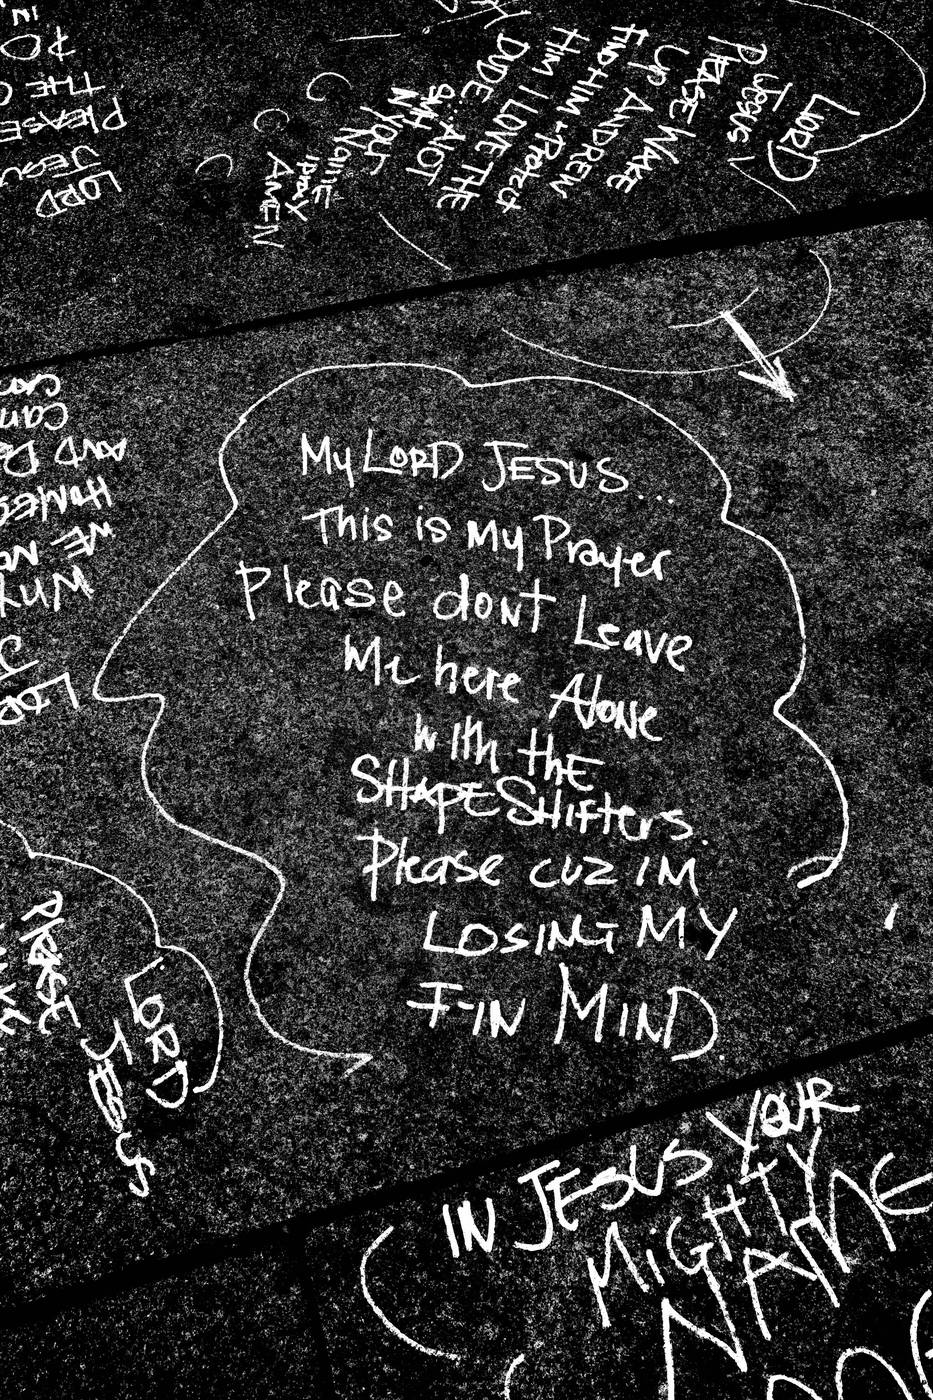 LORD
Jesus
PLEASE WAKE
UP ANDREW
FIND HIM + Protect
HIM I LOVE THE
DUDE
SMH... NOT
N YOUR
Name
I pray
AMEN!
LORD
JESUS
PLEASE
THE
DO
My LORD JESUS...
This is My Prayer
Please dont Leave
Me here Alone
with thE
SHAPESHifters.
Please cuz IM
LOSING MY
F-IN MIND.
LORD
WHY
WE
HOMELESS
AND
can
LORD
JESUS
PLEASE
IN JESUS YOUR
MIGHTY
NAME